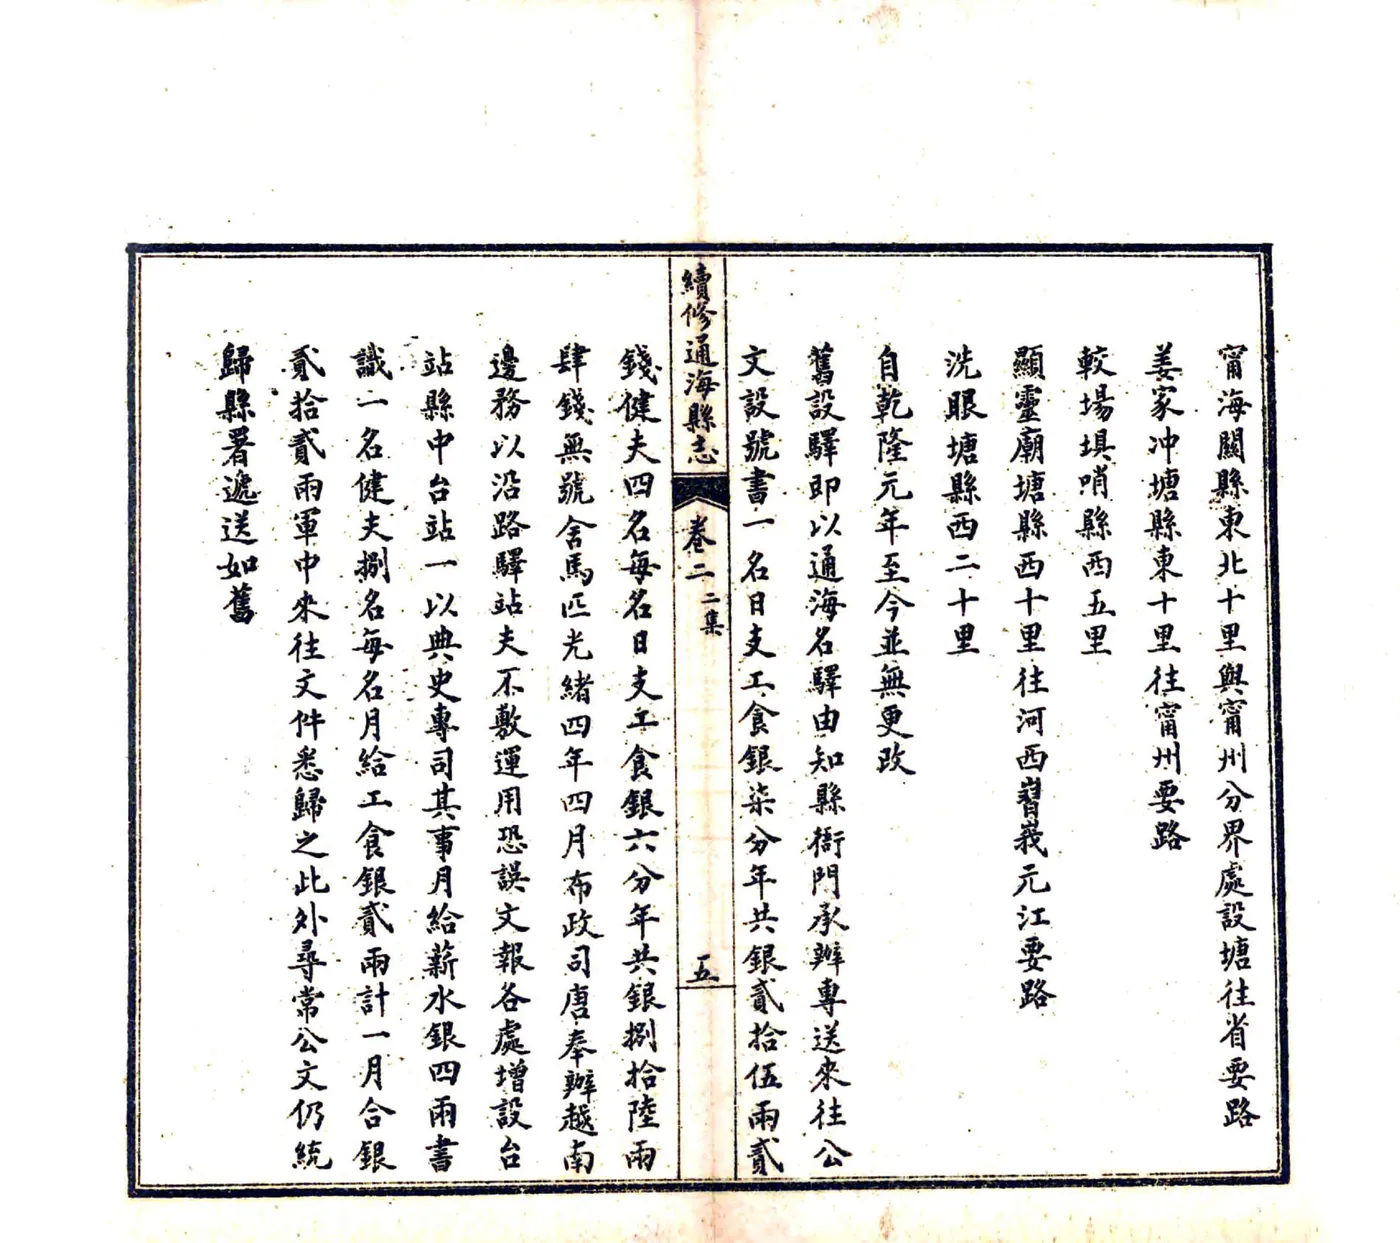 甯海關縣東北十里與甯州分界處設塘往省要路
姜家冲塘縣東十里往甯州要路
較場埧哨縣西五里
顯靈廟塘縣西十里往河西嶍峩元江要路
洗眼塘縣西二十里
自乾隆元年至今並無更改
舊設驛即以通海名驛由知縣衙門承辦專送來往公
文設號書一名日支工食銀柒分年共銀貳拾伍兩貳
續修通海縣志
卷二
二集
五
錢健夫四名每名日支工食銀六分年共銀捌拾陸兩
肆錢無號舍馬匹光緒四年四月布政司唐奉辦越南
邊務以沿路驛站夫不敷運用恐誤文報各處增設台
站縣中台站一以典史專司其事月給薪水銀四兩書
識一名健夫捌名每名月給工食銀貳兩計一月合銀
貳拾貳兩軍中來往文件悉歸之此外尋常公文仍統
歸縣署遞送如舊